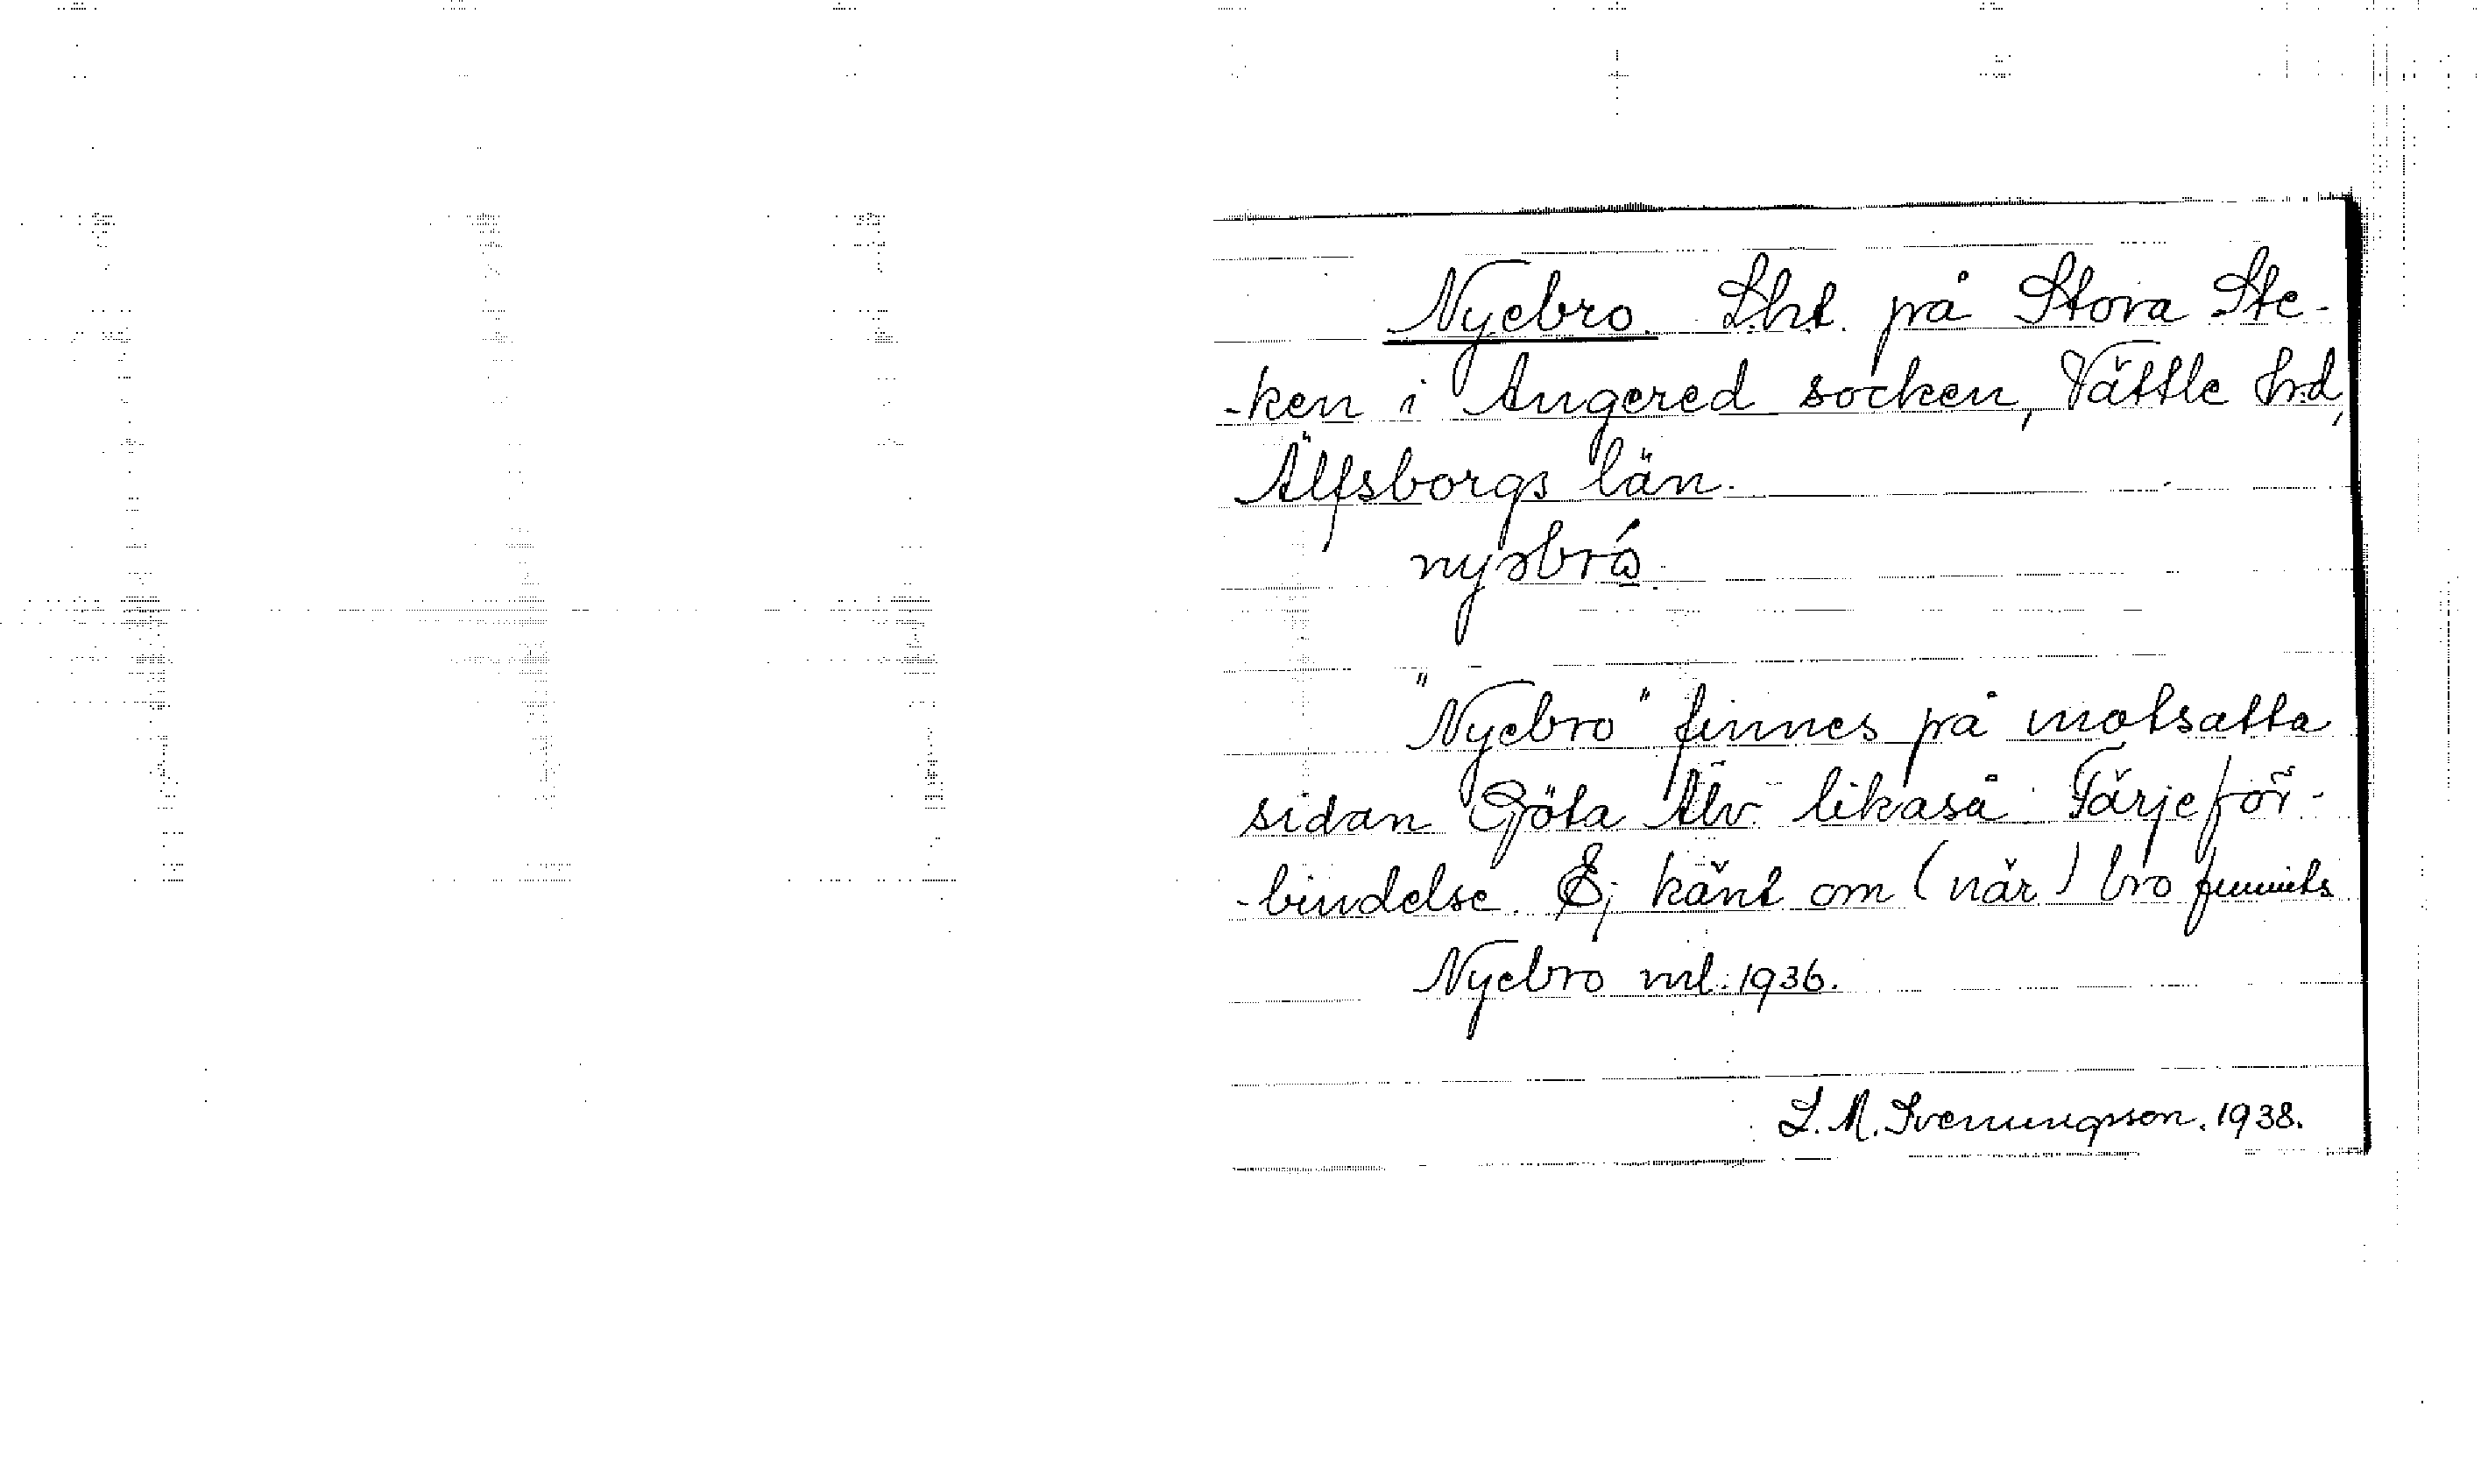 Nyebro. Lht. på Stora Ste-
-ken i Angered socken, Vättle hd,
Älfsborgs län.
"Nyebro" finnes på motsatta
sidan Göta Älv likaså. Färjeför-
-bindelse. Ej känt om (när) bro funnits
Nyebro ml. 1936.
L. M. Svenungsson. 1938.